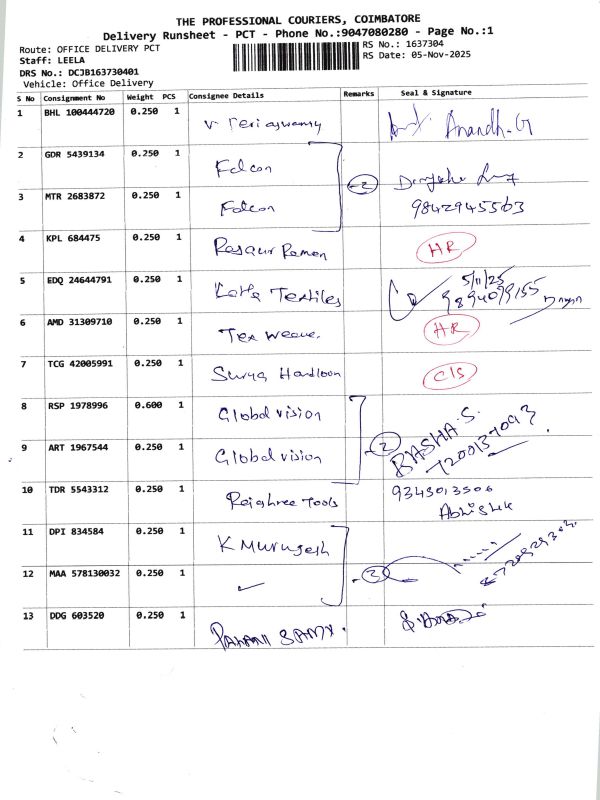 THE PROFESSIONAL COURIERS, COIMBATORE
Delivery Runsheet - PCT - Phone No.:9047080280 - Page No.:1
Route: OFFICE DELIVERY PCT
Staff: LEELA
DRS No.: DCJB163730401
Vehicle: Office Delivery
RS No.: 1637304
RS Date: 05-Nov-2025
S No Consignment No Weight PCS Consignee Details Remarks Seal & Signature
1 BHL 100444720 0.250 1 V Periaswamy Anandh-G
2 GDR 5439134 0.250 1 Falcon
3 MTR 2683872 0.250 1 Falcon 2 9842945563
4 KPL 684475 0.250 1 Rasaur Ramen HR
5 EDQ 24644791 0.250 1 Textiles 5/11/25 9894099155
6 AMD 31309710 0.250 1 Tex weave. HR
7 TCG 42005991 0.250 1 Surya Handloon C/S
8 RSP 1978996 0.600 1 Global vision
9 ART 1967544 0.250 1 Global vision 2 BASHA.S. 7200137093
10 TDR 5543312 0.250 1 Rajshree Tools 9345013506 Abhishek
11 DPI 834584 0.250 1 K Murugesh
12 MAA 578130032 0.250 1 3
13 DDG 603520 0.250 1 PALANI SAMY.